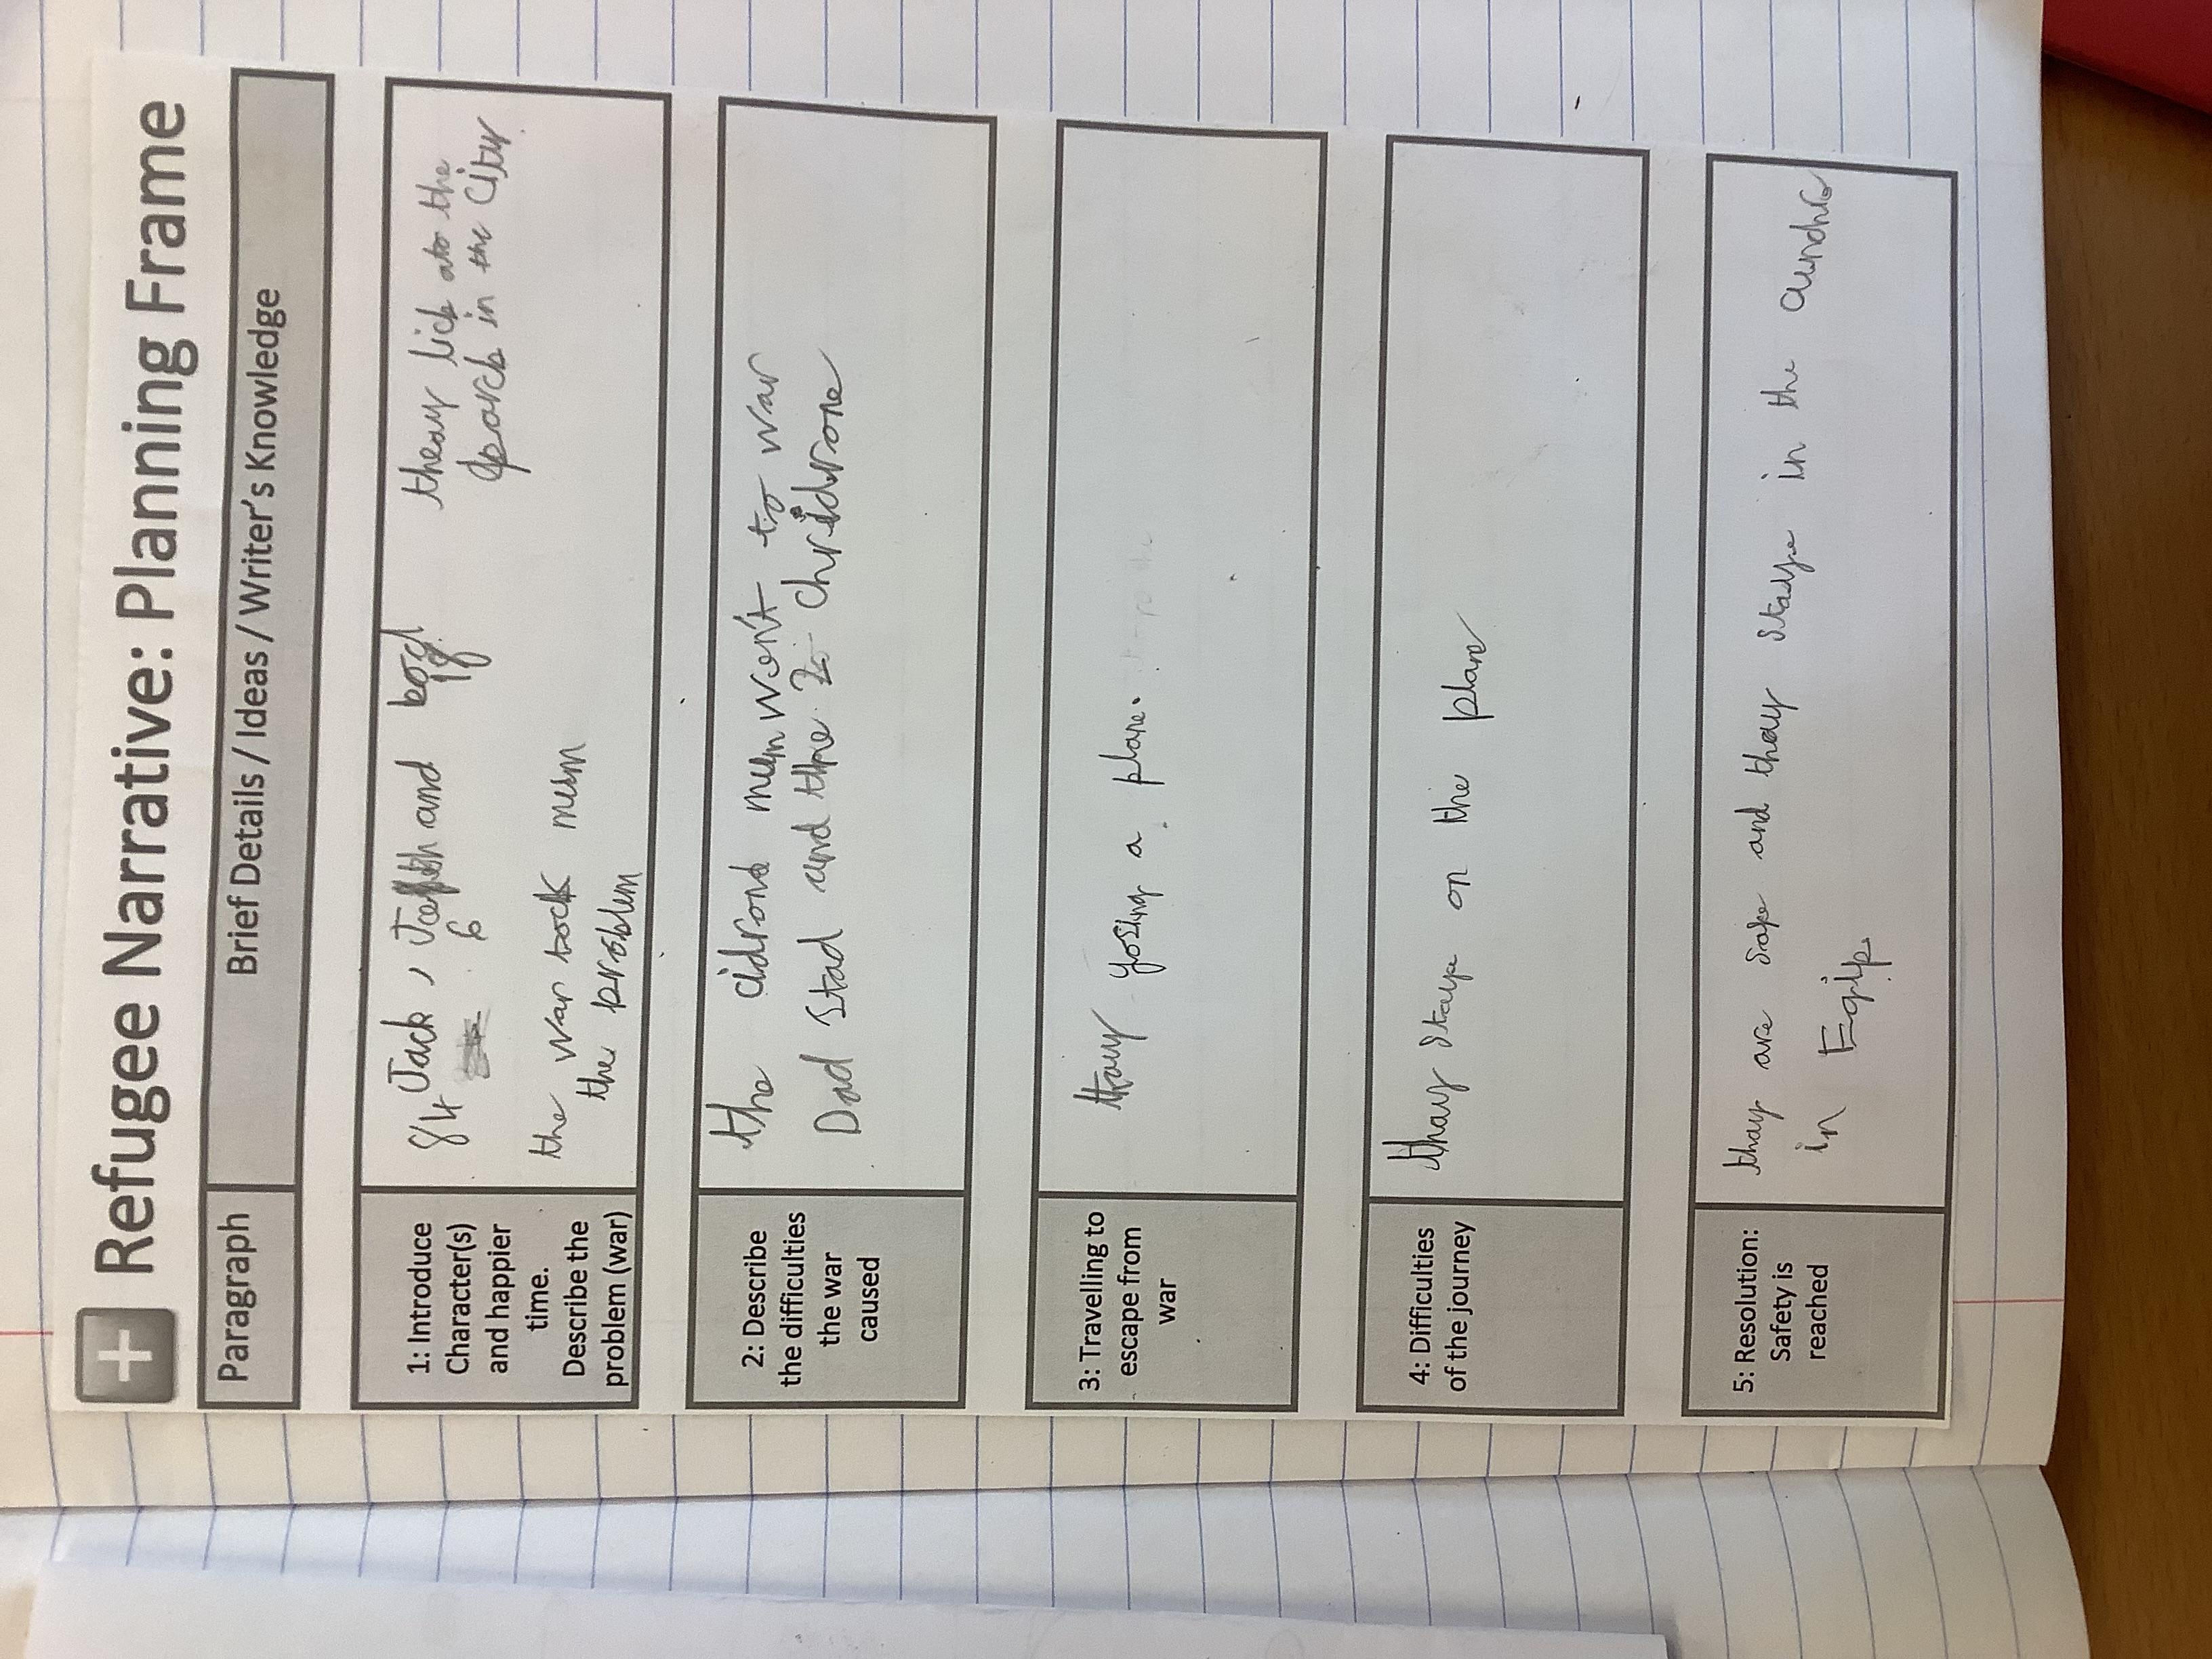 Refugee Narrative: Planning Frame
Paragraph
Brief Details / Ideas / Writer's Knowledge
1: Introduce
Character(s)
and happier
time.
Describe the
problem (war)
84 Jack, and
6 18
theay lick ato the
parck in the City
the war tock mum
the problem
2: Describe
the difficulties
the war
caused
the cidrond mum went to war
Dad stad and thre 2 Chridrone
3: Travelling to
escape from
war
thay yosing a plane.
4: Difficulties
of the journey
thay staye on the plane
5: Resolution:
Safety is
reached
thay are safe and thay staye in the
in Egilp.